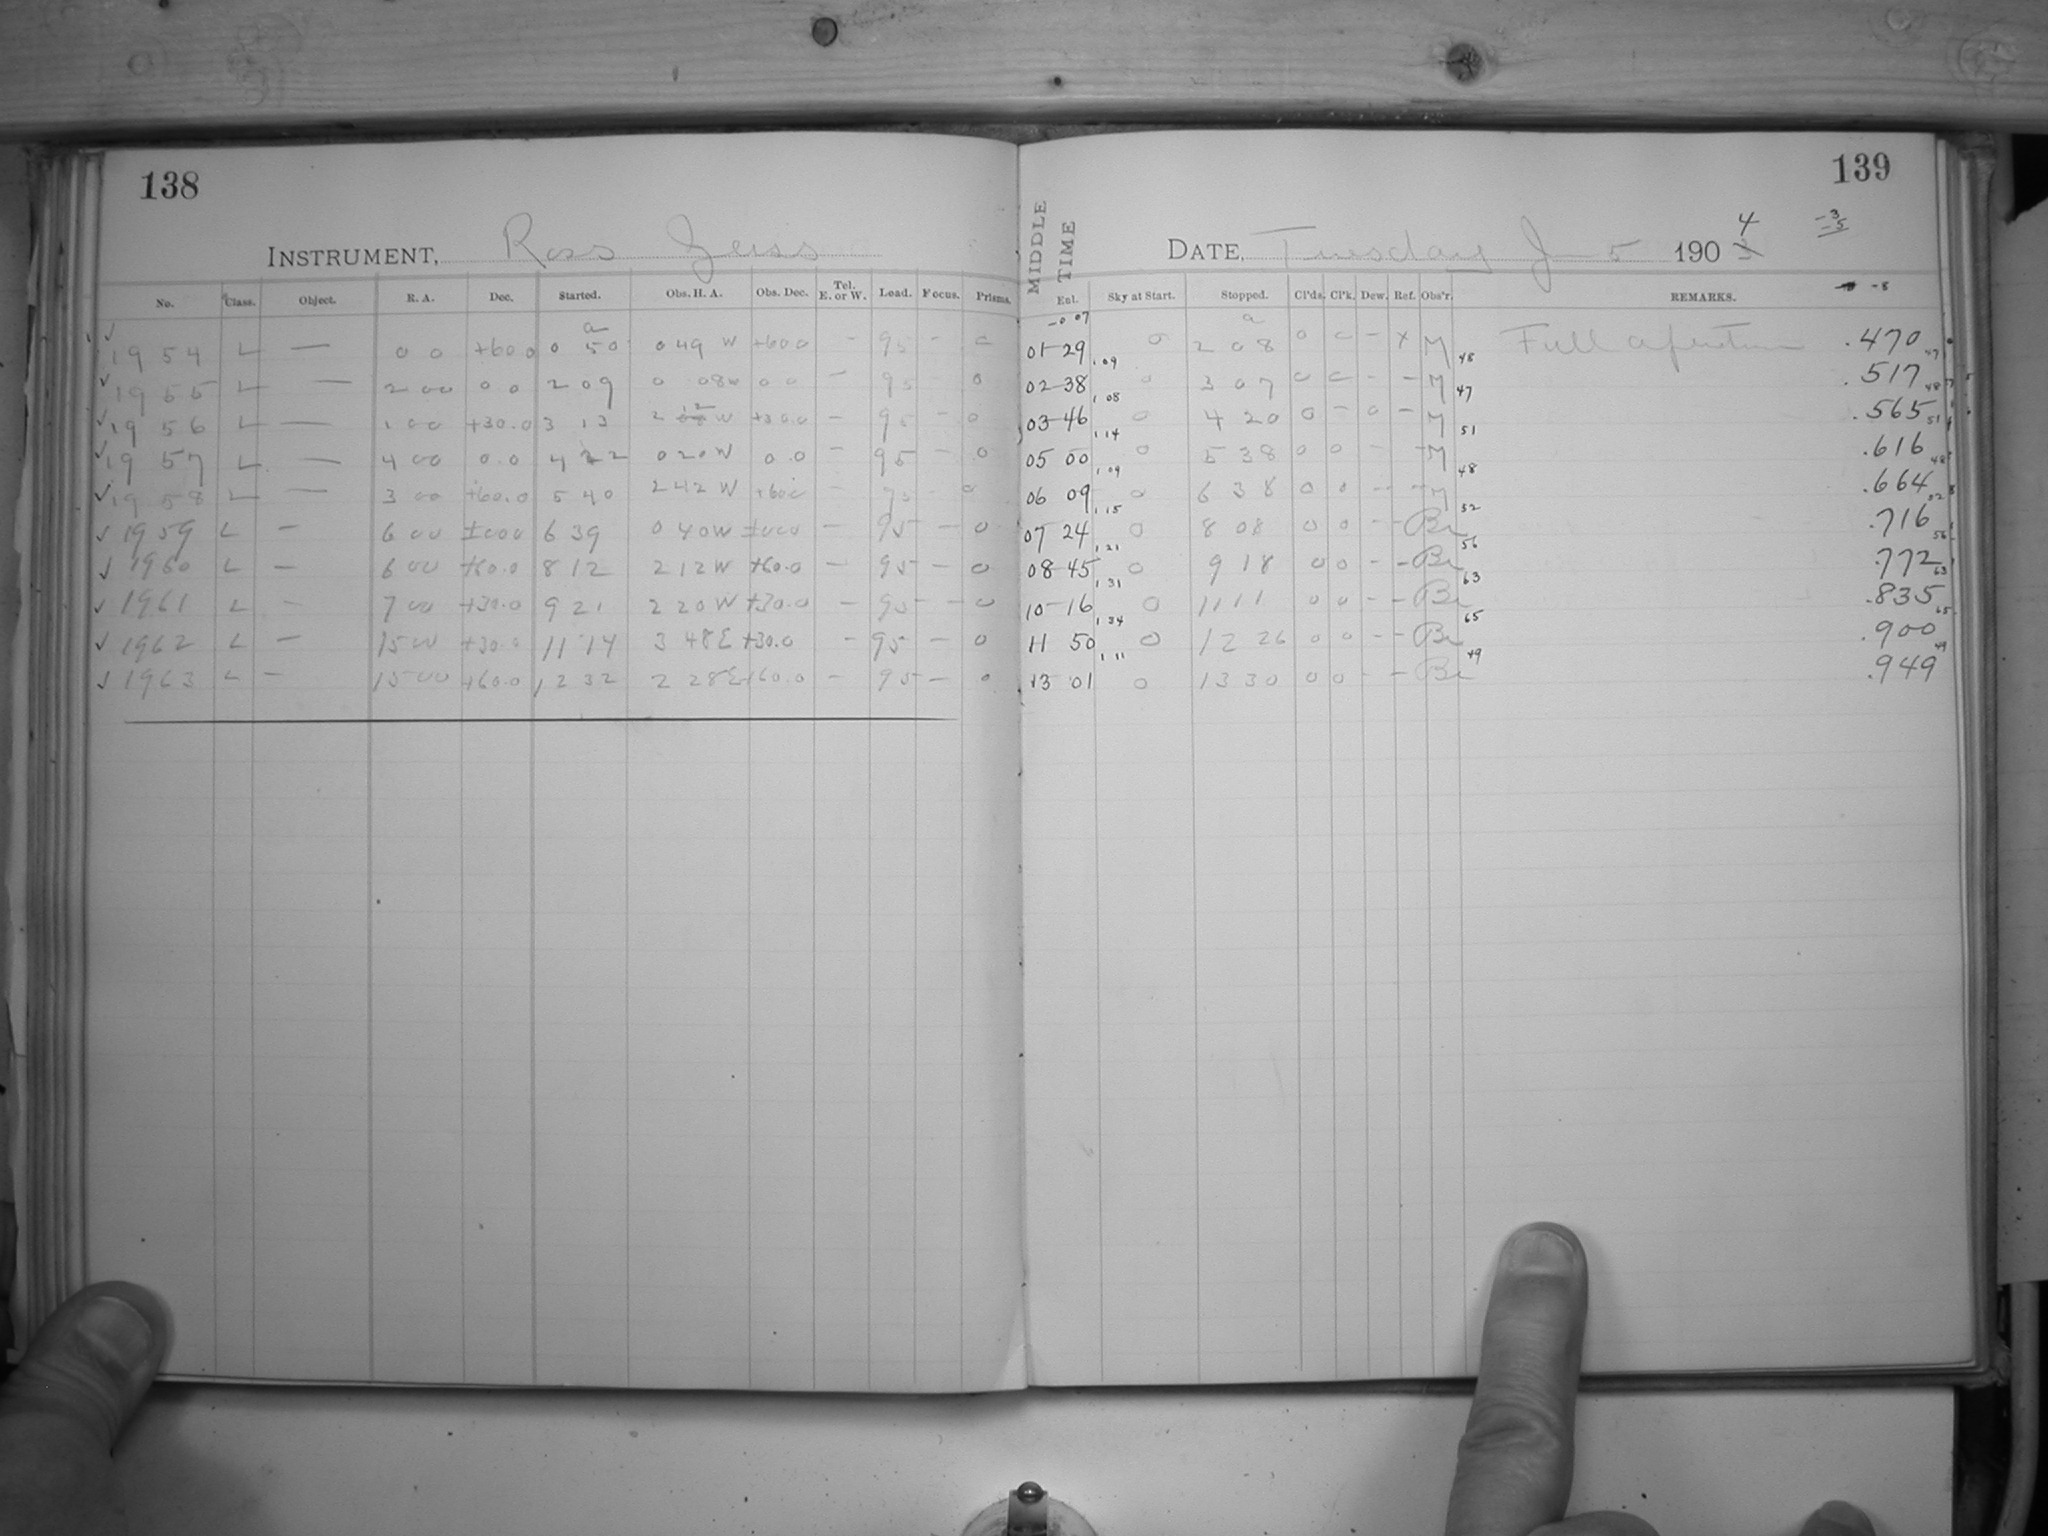 138
139
INSTRUMENT, Ross Zeiss
MIDDLE TIME
DATE, Tuesday Jan 5 1904
-3
-5
No. Class. Object. R. A. Dec. Started. Obs. H. A. Obs. Dec. Tel. E. or W. Load. Focus. Prisms. Exl. Sky at Start. Stopped. Cl'ds. Cl'k. Dew. Ref. Obs'r. REMARKS. -8
-0 07
a a
✓ 1954 L — 0 0 +60 0 0 50 0 49 W +60 0 - 95 - 0 01-29 0 2 08 0 0 - x M Full aperture .470
1.09 48 47
✓ 1955 L — 2 00 0 0 2 09 0 08 W 0 0 - 95 - 0 02-38 0 3 07 0 0 - - M .517
1.08 47 48
✓ 1956 L — 1 00 +30.0 3 13 2 12 W +30.0 - 95 - 0 03-46 0 4 20 0 - 0 - M .565
1.14 51 51
✓ 1957 L — 4 00 0.0 4 22 0 20 W 0.0 - 95 - 0 05 00 0 5 38 0 0 - - M .616
1.09 48 48
✓ 1958 L — 3 00 +60.0 5 40 2 42 W +60 - 95 - 0 06 09 0 6 38 0 0 - - M .664
1.15 52 52
✓ 1959 L — 6 00 ±000 6 39 0 40 W ±000 - 95 - 0 07 24 0 8 08 0 0 - - Br .716
1.21 56 56
✓ 1960 L — 6 00 +60.0 8 12 2 12 W +60.0 - 95 - 0 08-45 0 9 18 0 0 - - Br .772
1.31 63 63
✓ 1961 L — 7 00 +30.0 9 21 2 20 W +30.0 - 95 - 0 10-16 0 11 11 0 0 - - Br .835
1.34 65 65
✓ 1962 L — 15 00 +30.0 11 14 3 48 E +30.0 - 95 - 0 11 50 0 12 26 0 0 - - Br .900
1.11 49 49
✓ 1963 L — 15 00 +60.0 12 32 2 28 E +60.0 - 95 - 0 13 01 0 13 30 0 0 - - Br .949